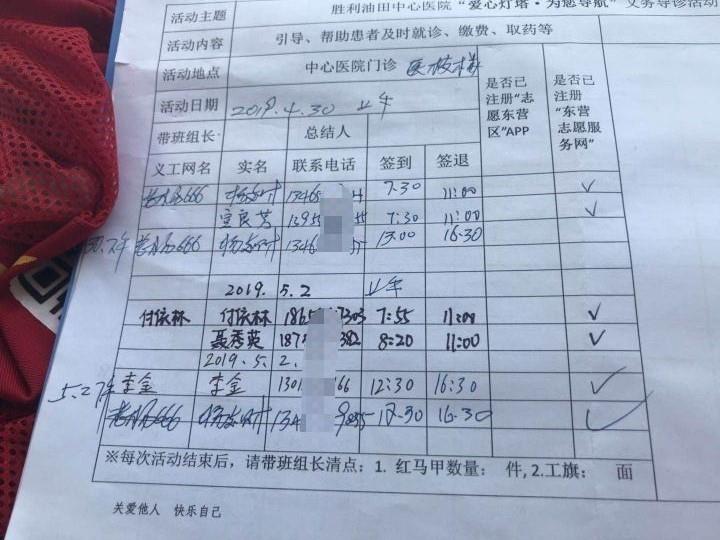 活动主题 胜利油田中心医院“爱心灯塔·为您导航”义务导诊活动
活动内容 引导、帮助患者及时就诊、缴费、取药等
活动地点 中心医院门诊 医技楼
活动日期 2019.4.30 上午
带班组长: 总结人
是否已注册“志愿东营区”APP
是否已注册“东营志愿服务网”
义工网名 实名 联系电话 签到 签退
666 1346 7:30 11:00 ✓
宣良芳 1395 55 7:30 11:00 ✓
666 1346 13:00 16:30
2019.5.2 上午
付依林 付依林 1865 7303 7:55 11:00 ✓
聂秀英 187 382 8:20 11:00 ✓
2019.5.2.
5.2下午 李金 李金 1301 166 12:30 16:30 ✓
666 134 16:30 ✓
※每次活动结束后，请带班组长清点：1. 红马甲数量： 件, 2.工旗： 面
关爱他人 快乐自己